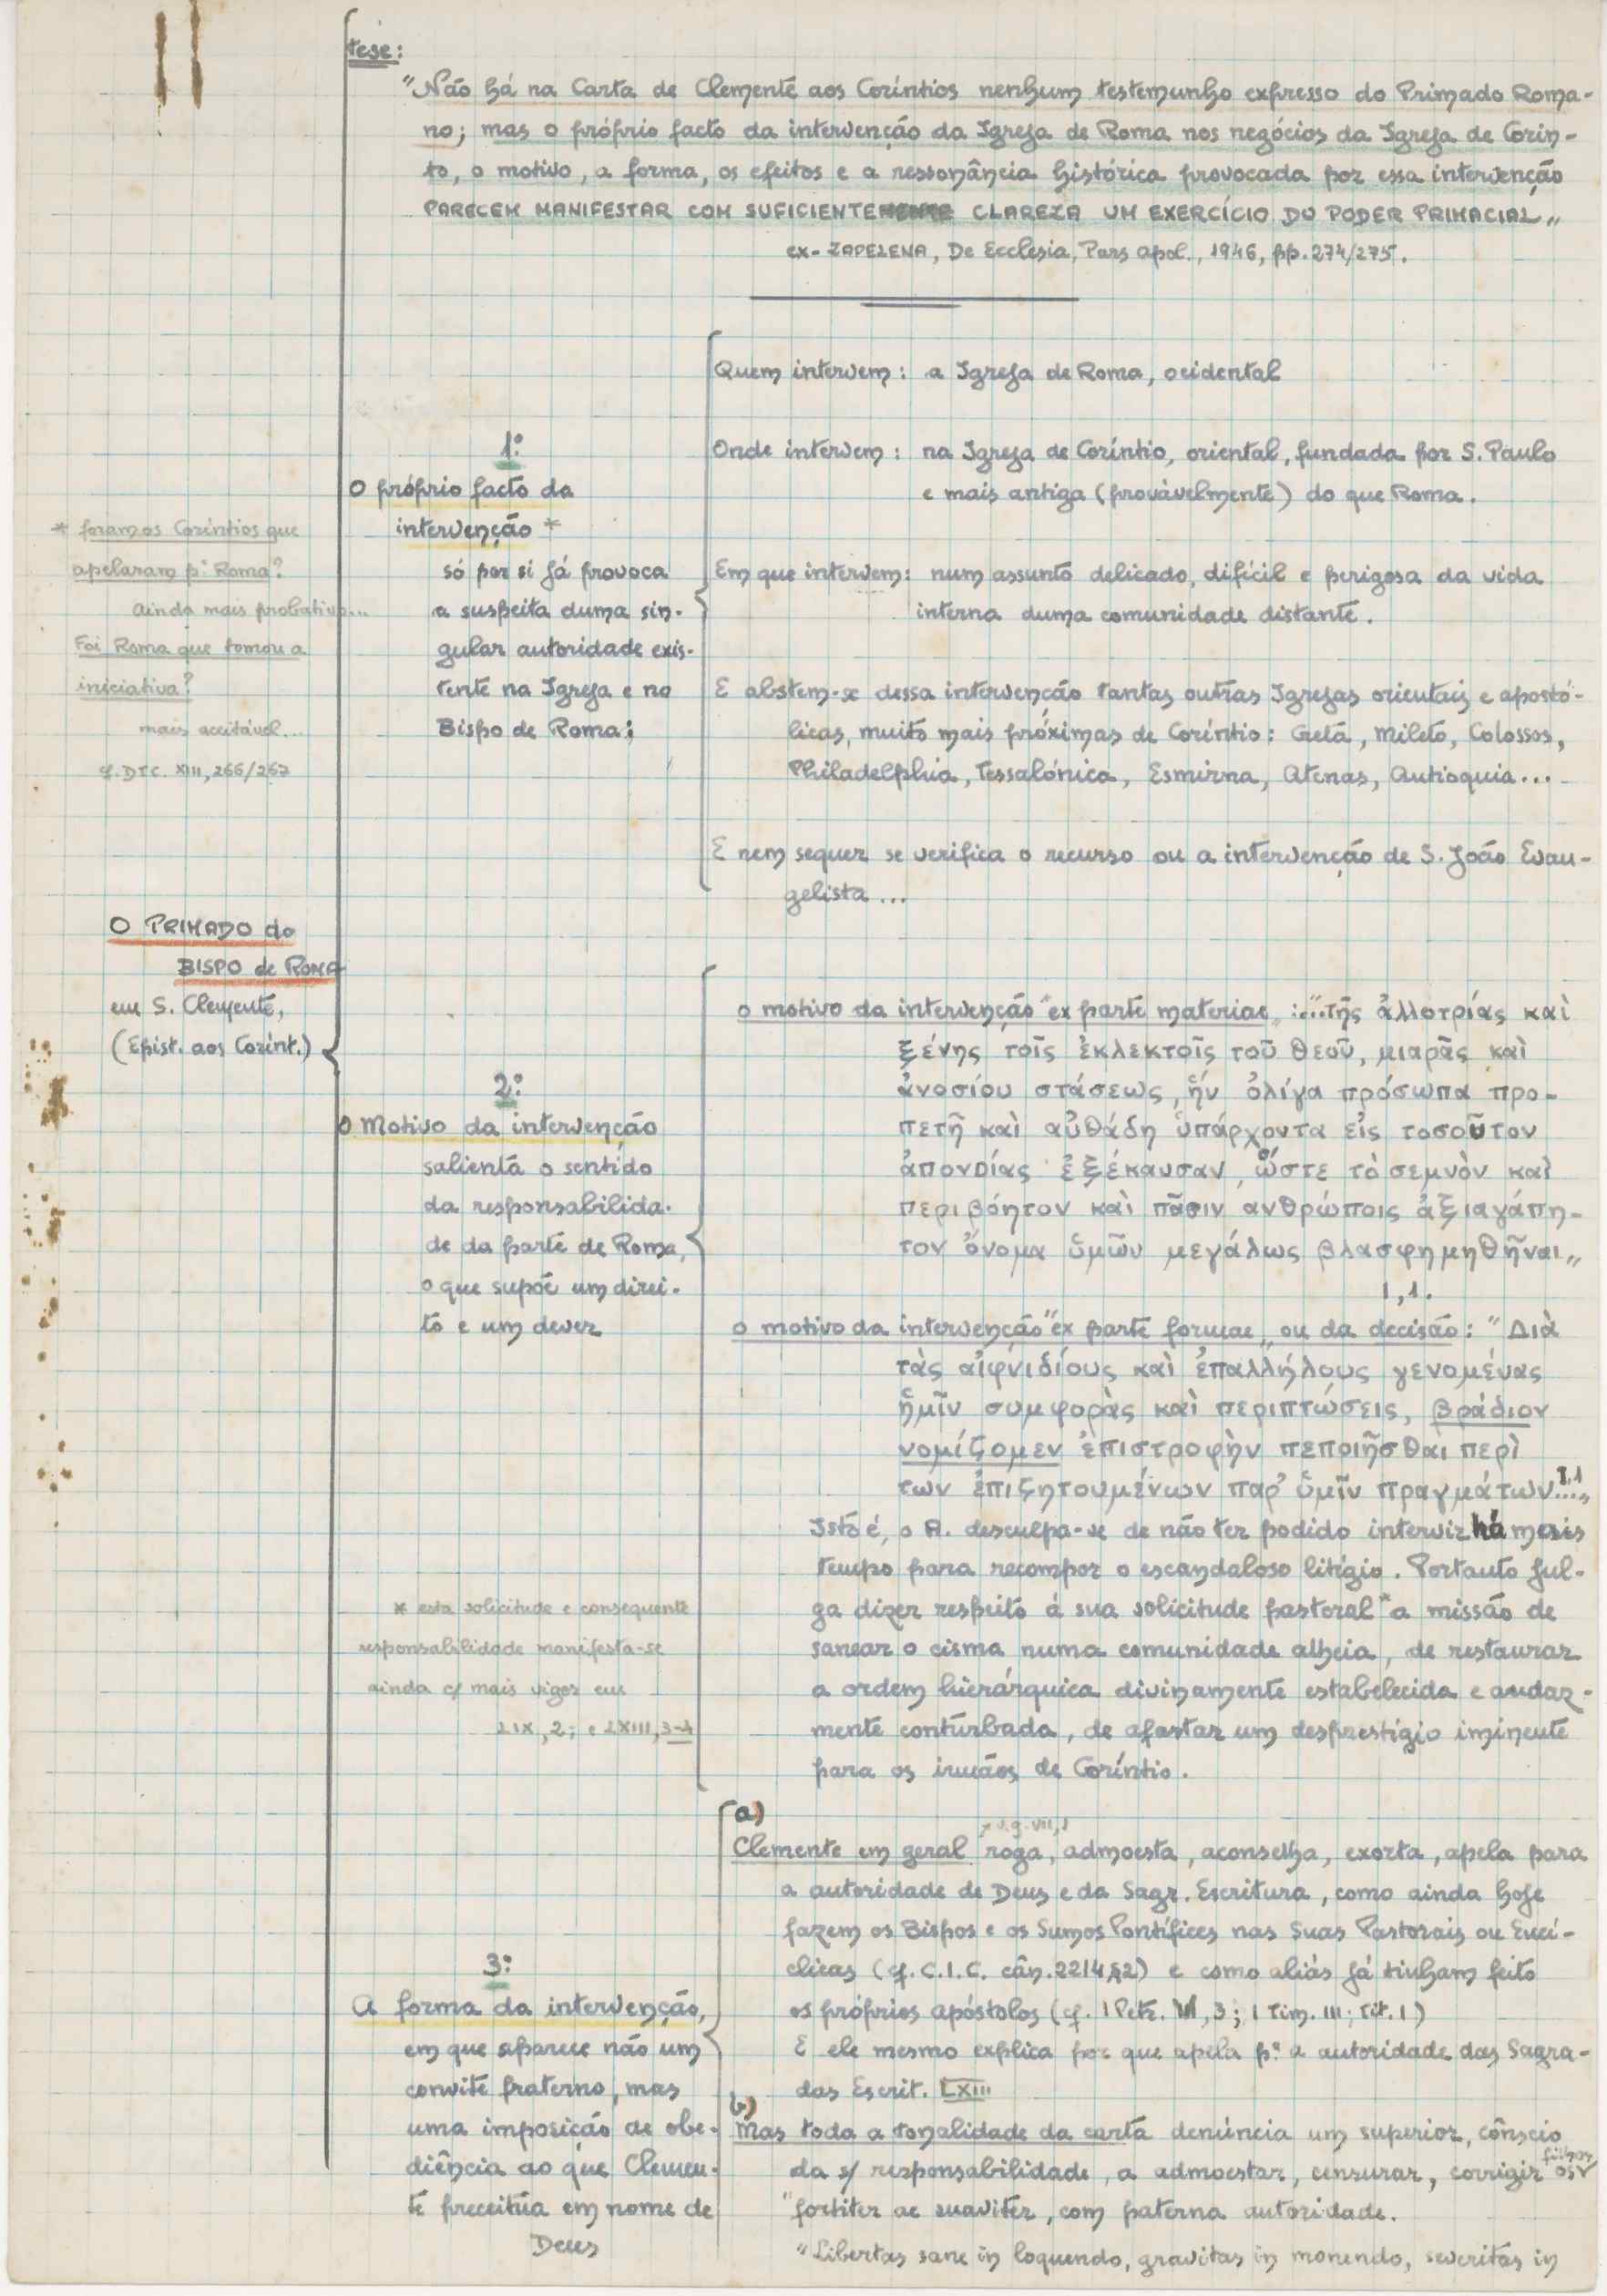 tese:
"Não há na Carta de Clemente aos Coríntios nenhum testemunho expresso do Primado Roma-
no; mas o próprio facto da intervenção da Igreja de Roma nos negócios da Igreja de Corin-
to, o motivo, a forma, os efeitos e a ressonância histórica provocada por essa intervenção
PARECEM MANIFESTAR COM SUFICIENTE CLAREZA UM EXERCÍCIO DO PODER PRIMACIAL„
ex- ZAPELENA, De Ecclesia, Pars apol., 1946, pp. 274/275.
O PRIMADO do
BISPO de ROMA
em S. Clemente,
(Epist. aos Corint.)
1º
O próprio facto da
intervenção *
só por si já provoca
a suspeita duma sin-
gular autoridade exis-
tente na Igreja e no
Bispo de Roma:
* foram os Coríntios que
apelaram pª Roma?
ainda mais probativo...
Foi Roma que tomou a
iniciativa?
mais aceitável...
cf. DTC. XIII, 266/267
Quem intervem: a Igreja de Roma, ocidental
Onde intervem: na Igreja de Coríntio, oriental, fundada por S. Paulo
e mais antiga (provàvelmente) do que Roma.
Em que intervem: num assunto delicado, difícil e perigosa da vida
interna duma comunidade distante.
E abstem-se dessa intervenção tantas outras Igrejas orientais e apostó-
licas, muito mais próximas de Coríntio: Creta, Mileto, Colossos,
Philadelphia, Tessalónica, Esmirna, Atenas, Antioquia...
E nem sequer se verifica o recurso ou a intervenção de S. João Evan-
gelista...
2º
O Motivo da intervenção
salienta o sentido
da responsabilida-
de da parte de Roma,
o que supõe um direi-
to e um dever
o motivo da intervenção "ex parte materiae„ :"...τῆς ἀλλοτρίας καὶ
ξένης τοῖς ἐκλεκτοῖς τοῦ θεοῦ, μιαρᾶς καὶ
ἀνοσίου στάσεως, ἥν ὀλίγα πρόσωπα προ-
πετῆ καὶ αὐθάδη ὑπάρχοντα εἰς τοσοῦτον
ἀπονοίας ἐξέκαυσαν, ὥστε τὸ σεμνὸν καὶ
περιβόητον καὶ πᾶσιν ανθρώποις ἀξιαγάπη-
τον ὄνομα ὑμῶν μεγάλως βλασφημηθῆναι„
1,1.
o motivo da intervenção "ex parte formae„ ou da decisão: "Διὰ
τὰς αἰφνιδίους καὶ ἐπαλλήλους γενομένας
ἡμῖν συμφορὰς καὶ περιπτώσεις, βράδιον
νομίζομεν ἐπιστροφὴν πεποιῆσθαι περὶ
των ἐπιζητουμένων παρ' ὑμῖν πραγμάτων...„ I,1
Isto é, o A. desculpa-se de não ter podido intervir há mais
tempo para recompor o escandaloso litígio. Portanto jul-
ga dizer respeito á sua solicitude pastoral* a missão de
sanear o cisma numa comunidade alheia, de restaurar
a ordem hierárquica divinamente estabelecida e audaz-
mente conturbada, de afastar um desprestígio iminente
para os irmãos de Coríntio.
* esta solicitude e consequente
responsabilidade manifesta-se
ainda c/ mais vigor em
LIX, 2; e LXIII, 3-4
3º
A forma da intervenção,
em que aparece não um
convite fraterno, mas
uma imposição de obe-
diência ao que Clemen-
te preceitúa em nome de
Deus
a)
v.g. VII,1
Clemente em geral roga, admoesta, aconselha, exorta, apela para
a autoridade de Deus e da Sagr. Escritura, como ainda hoje
fazem os Bispos e os Sumos Pontífices nas Suas Pastorais ou Encí-
clicas (cf. C.I.C. cân. 2214 §2) e como aliás já tinham feito
os próprios apóstolos (cf. I Petr. , 3; I Tim. III; Tit. I)
E ele mesmo explica por que apela pª a autoridade das Sagra-
das Escrit. LXIII
b)
Mas toda a tonalidade da carta denúncia um superior, cônscio
da s/ responsabilidade, a admoestar, censurar, corrigir os filhos
"fortiter ac suaviter, com paterna autoridade.
"Libertas sane in loquendo, gravitas in monendo, severitas in